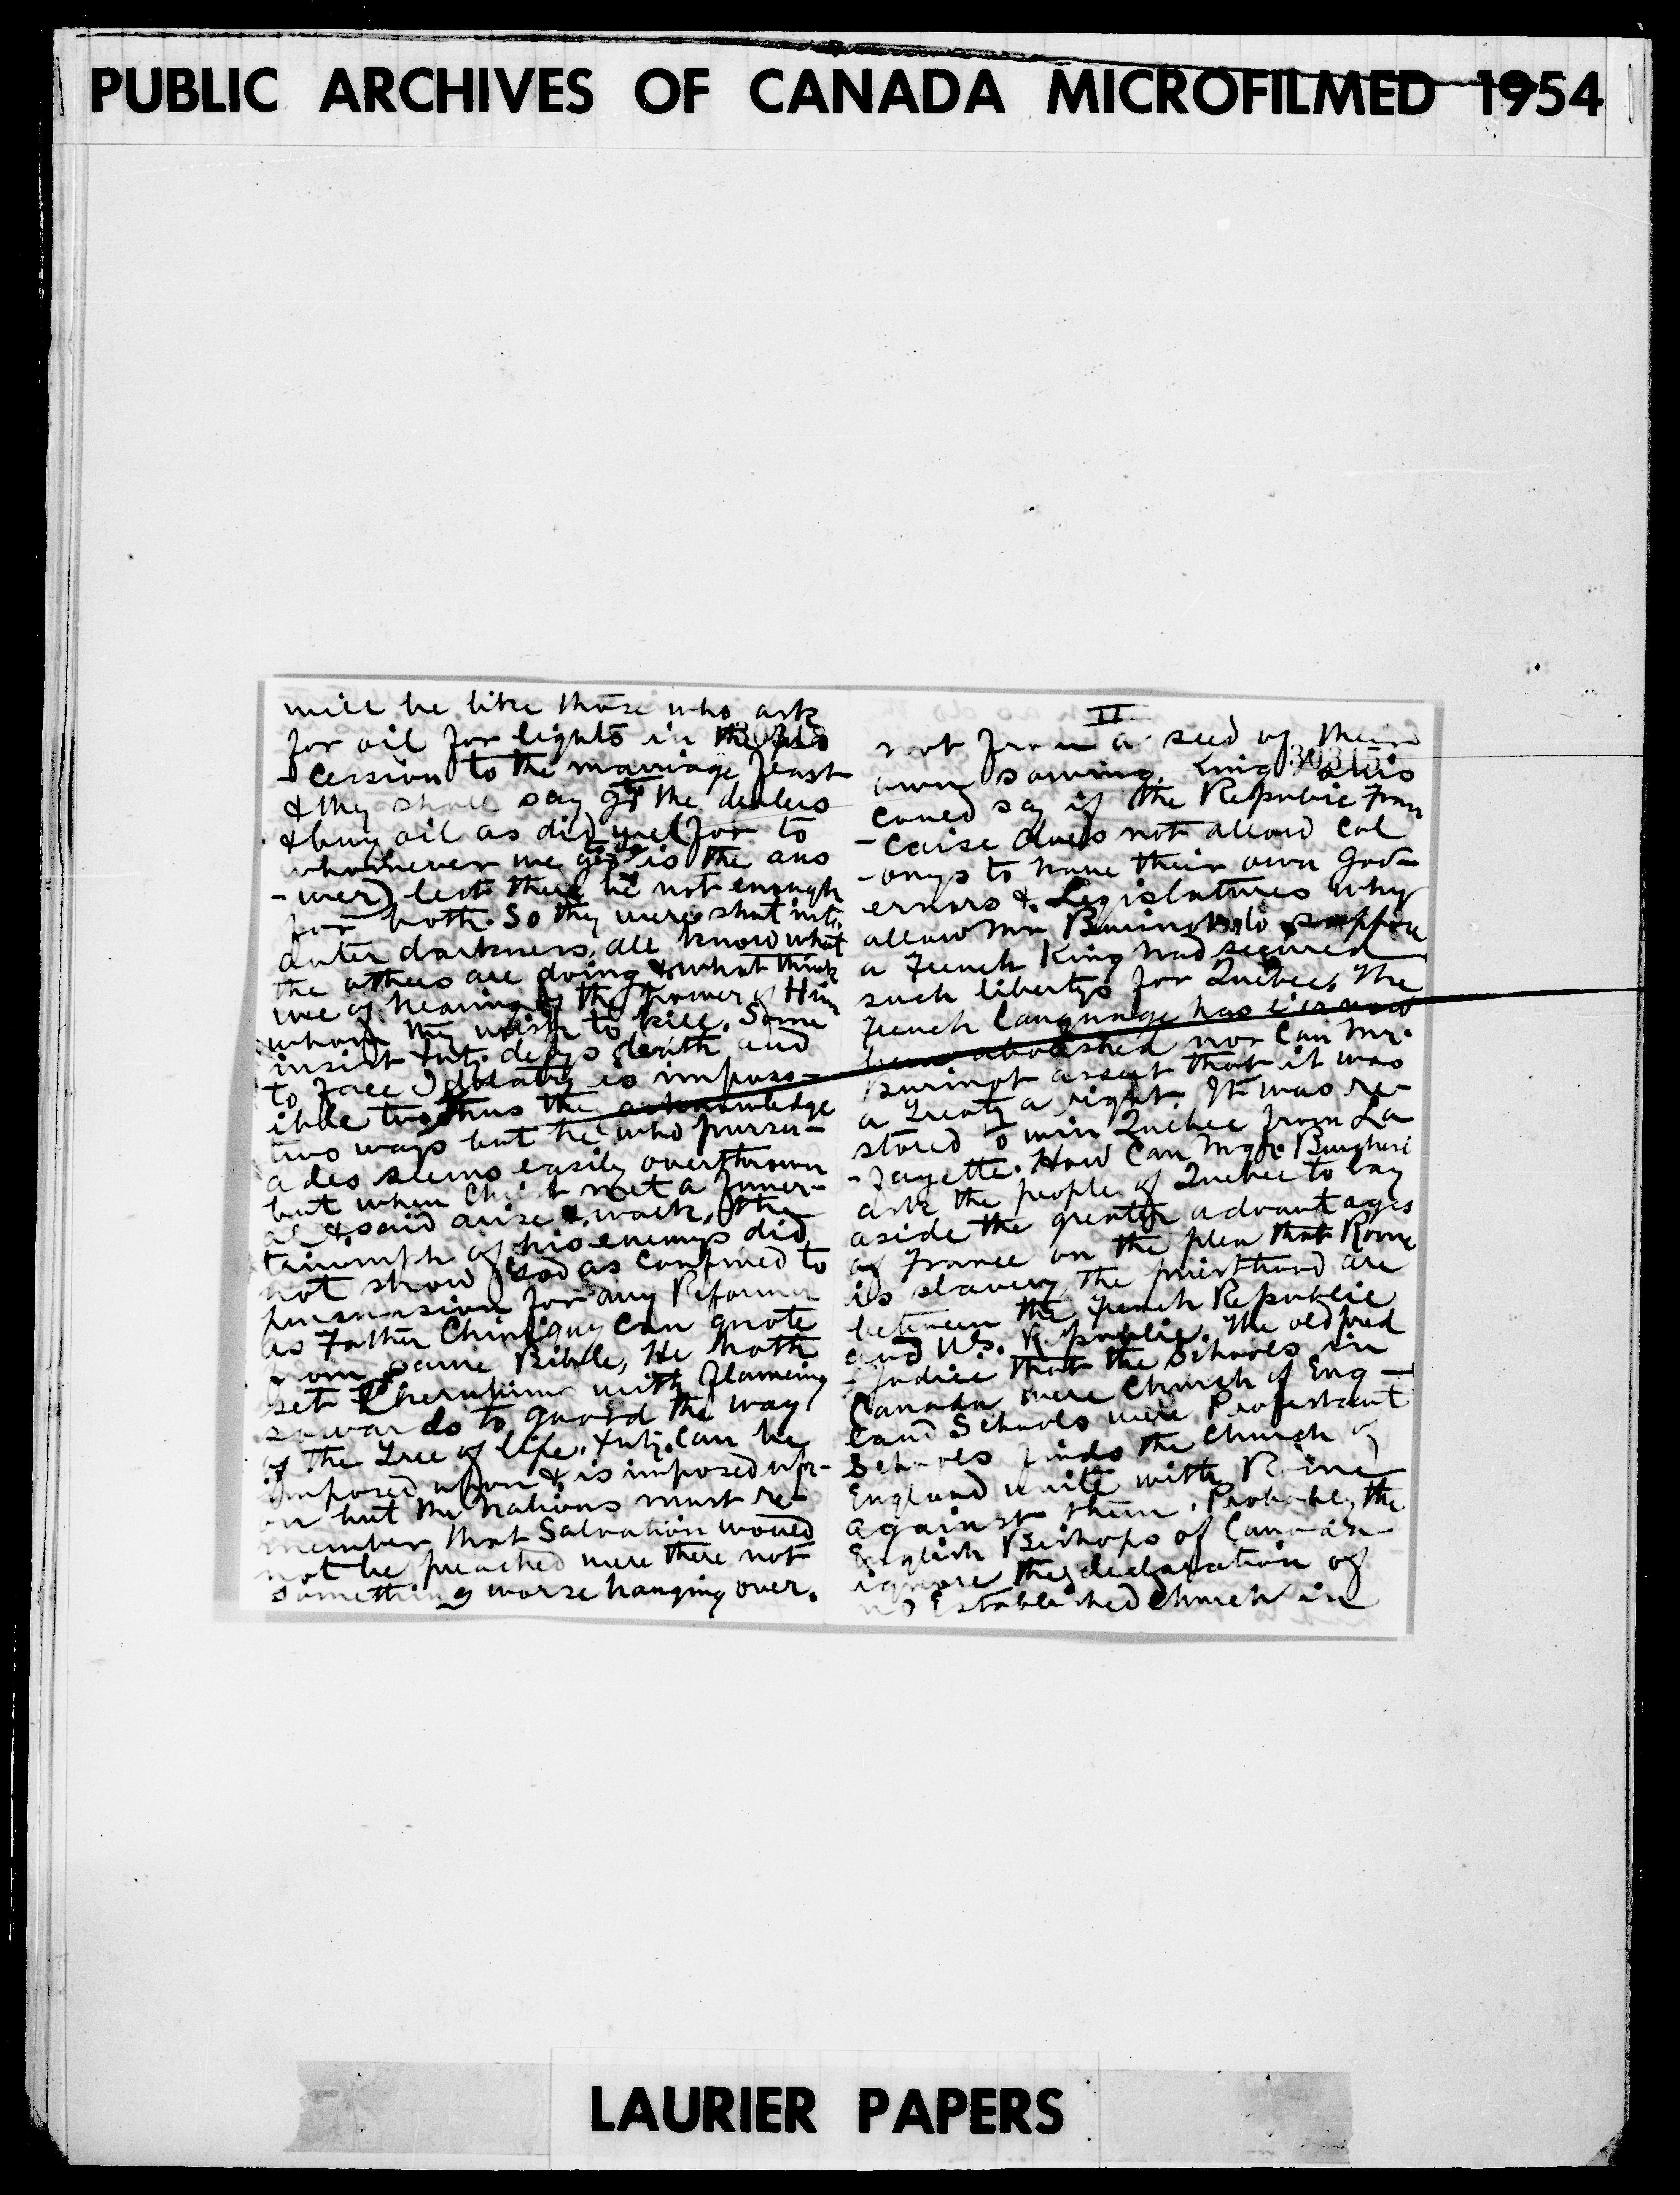 PUBLIC ARCHIVES OF CANADA MICROFILMED 1954
will be like those who ask
for oil for lights in the pro
-cession to the marriage feast
& they shall say go to the dealers
& buy oil as did ye (for to
whomever we go is the ans
-wer) lest there be not enough
for both. So they were shut into
outer darkness, all know what
the others are doing & what think
we of hearing of the power of Him
whom they wish to kill. Some
insist defys death and
to face Idolatry is imposs-
ible thus the acknowledge
two ways but he who persu-
ades seems easily overthrown
but when Christ met a funer-
al & said arise & walk, the
triumph of his enemys did
not show God as confined to
persuasion for any Reformer
as Father Chiniquy can quote
from same Bible, He hath
set Cherubim with flameing
swords to guard the way
of the Tree of life. can be
imposed upon & is imposed up-
on but the Nations must re-
member that Salvation would
not be preached were there not
something worse hanging over.
II
not from a seed of their
30315
own sowing. King
could say if the Republic Fran
-caise does not allow col
-onys to have their own Gov-
ernors & Legislatures why
allow Mr Bourinot to suppose
a French King had secured
such libertys for Quebec, the
French Language has
been abolished nor can Mr.
Burinot assert that it was
a Treaty a right. It was re-
stored to win Quebec from La
-Fayette. How can Mgr. Buchesi
ask the people of Quebec to lay
aside the greater advantages
of France on the plea that Rome
is slavery, the priesthood are
between the French Republic
and U.S. Republic. The old prej
-udice that the Schools in
Canada were Church of Eng-
land Schools were Protestant
Schools finds the Church of
England unite with Rome
against them. Probably the
English Bishops of Canada
ignore the declaration of
no Established Church in
LAURIER PAPERS